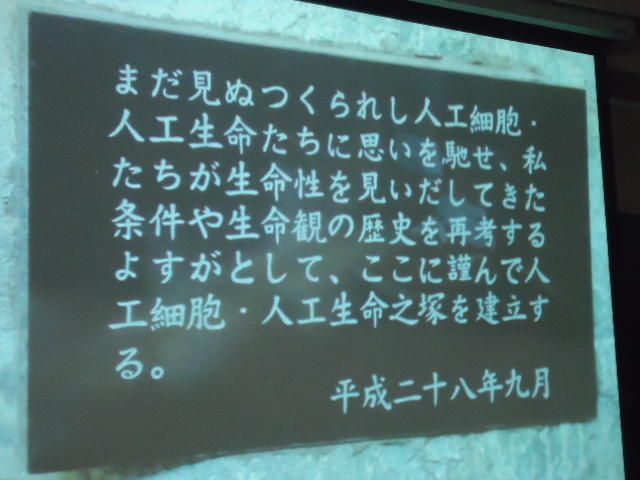 まだ見ぬつくられし人工細胞・
人工生命たちに思いを馳せ、私
たちが生命性を見いだしてきた
条件や生命観の歴史を再考する
よすがとして、ここに謹んで人
工細胞・人工生命之塚を建立す
る。
平成二十八年九月